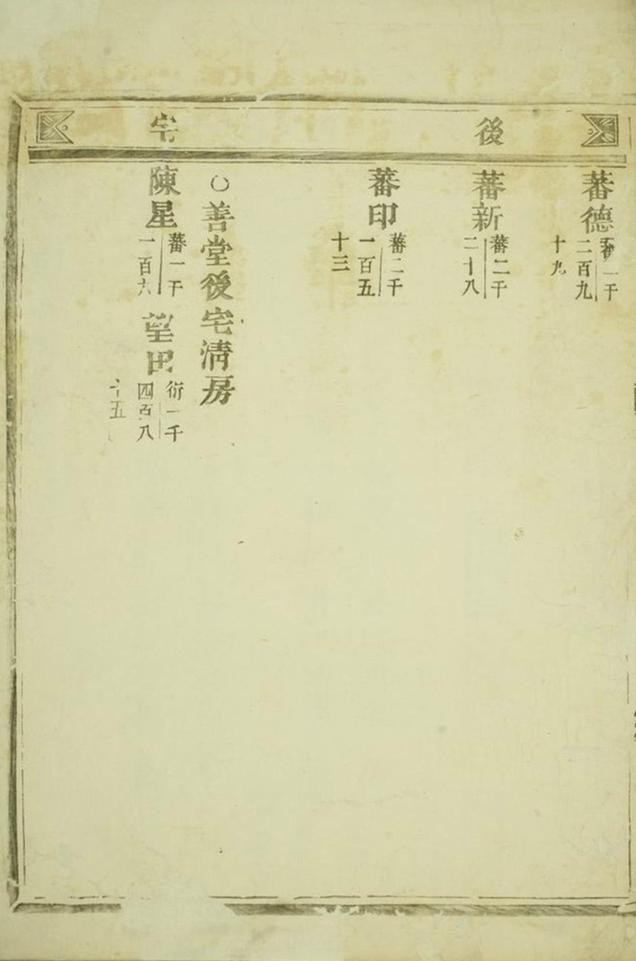 後宅
蕃德
蕃一千
二百九
十九
蕃新
蕃二千
二十八
蕃印
蕃二千
一百五
十三
○善堂後宅清房
陳星
蕃一千
一百六
望田
衍一千
四百八
十五